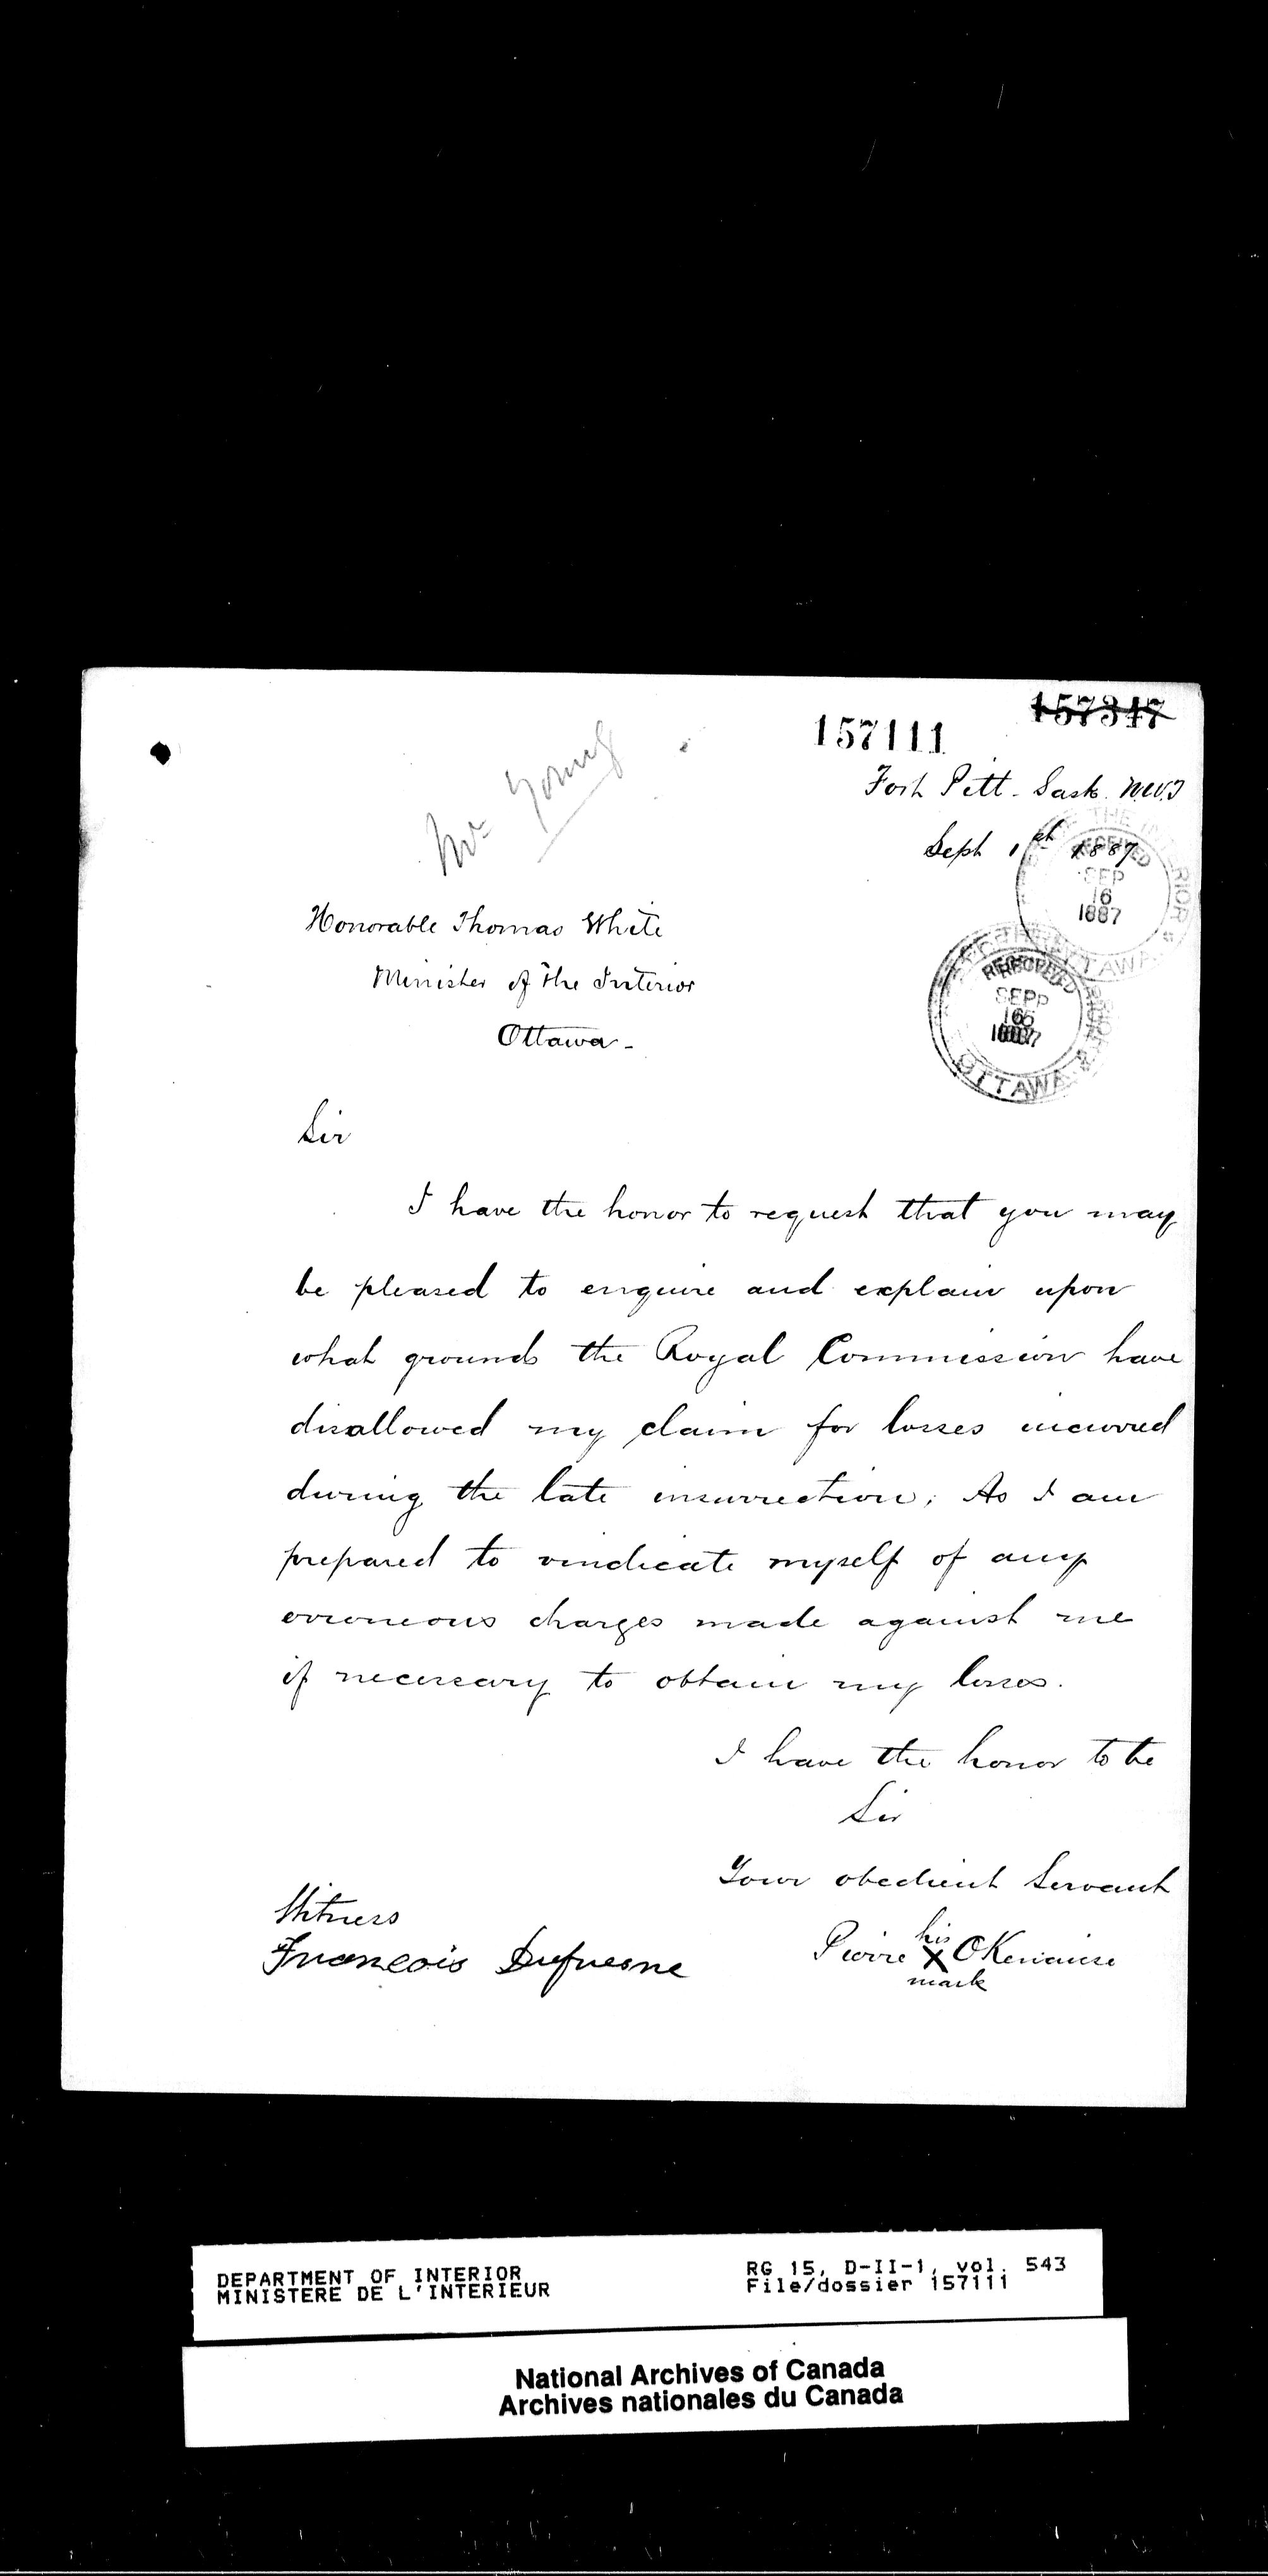 157347
157111
Mr Young
Fort Pitt - Sask. N.W.T
Sept 1st 1887
RECEIVED
SEP
16
1887
OTTAWA
RECEIVED
SEP
16
1887
OTTAWA
Honorable Thomas White
Minister of the Interior
Ottawa -
Sir
I have the honor to request that you may
be pleased to enquire and explain upon
what grounds the Royal Commission have
disallowed my claim for losses incurred
during the late insurrection; As I am
prepared to vindicate myself of any
erroneous charges made against me
if necessary to obtain my losses.
I have the honor to be
Sir
Your obedient Servant
Witness
his
Pierre X
mark
Francois Dufresne
DEPARTMENT OF INTERIOR
MINISTERE DE L'INTERIEUR
RG 15, D-II-1, vol. 543
File/dossier 157111
National Archives of Canada
Archives nationales du Canada